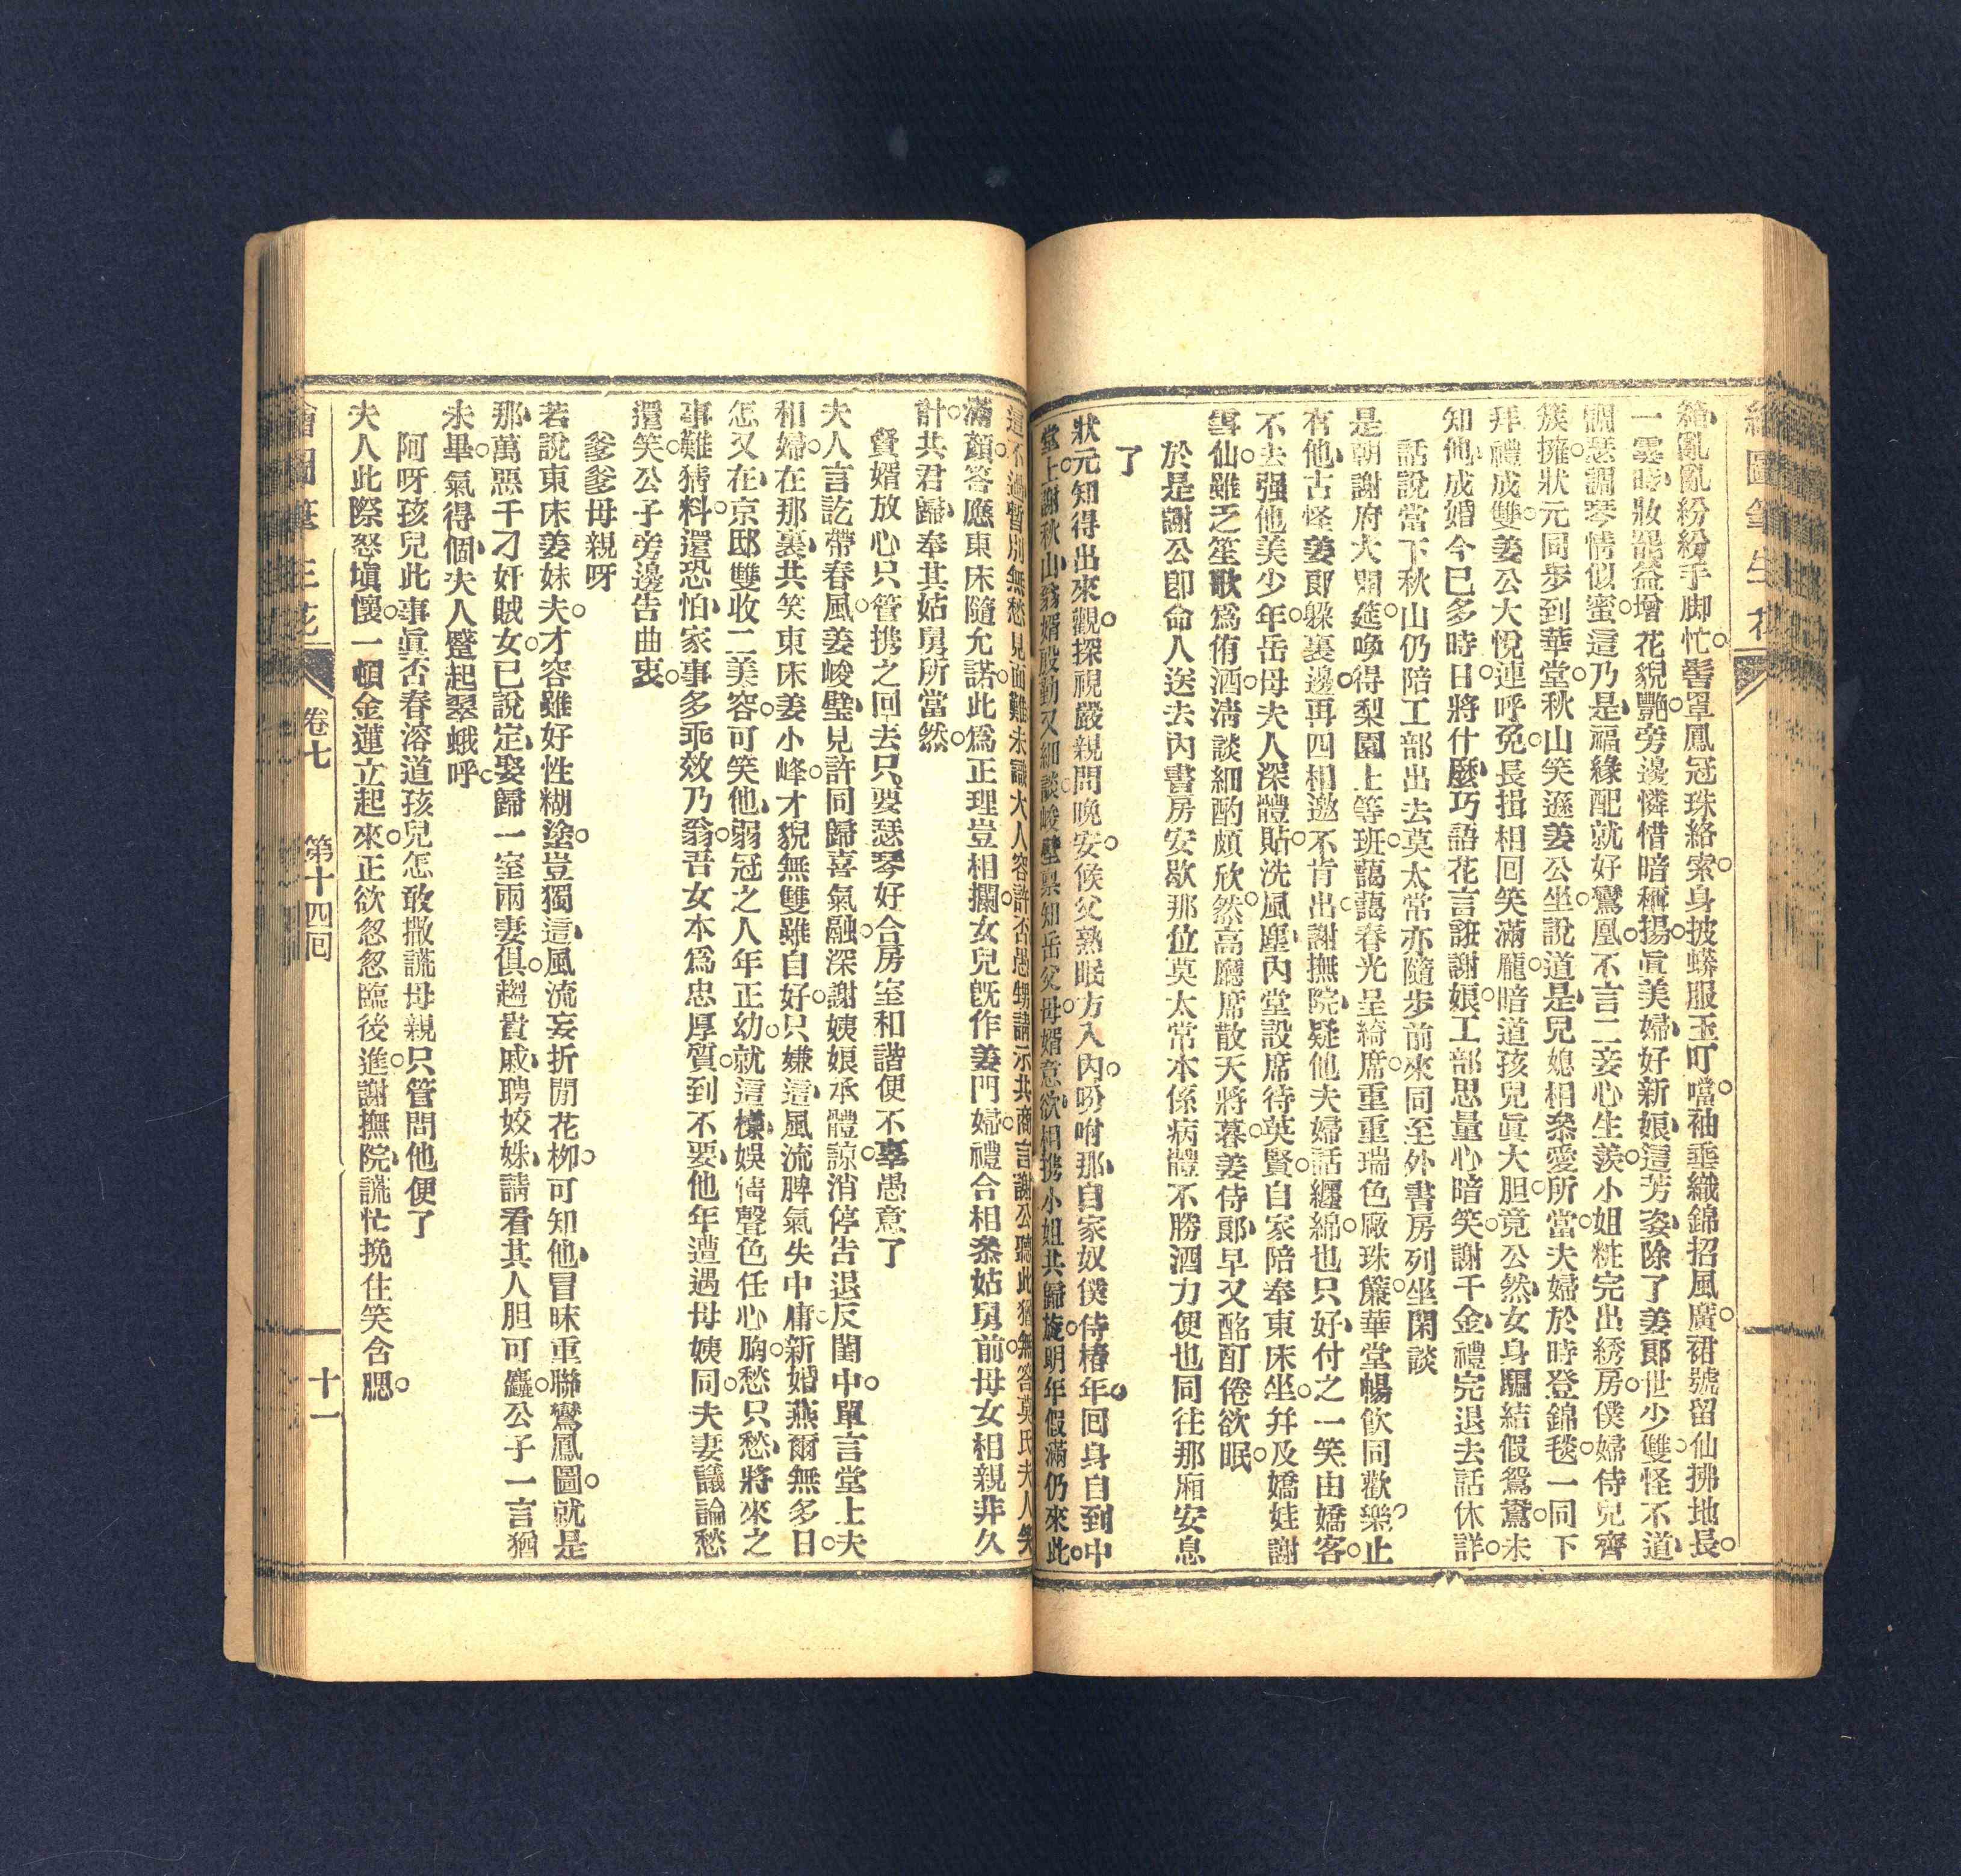 繪圖筆生花
箱、亂亂紛紛手脚忙。髻罩鳳冠珠絡索。身披蟒服玉叮噹。袖垂織錦招風廣。裙號留仙拂地長。
一霎時、妝罷益增花貌艷。旁邊憐惜暗稱揚。眞美婦、好新娘、這芳姿除了姜郎世少雙。怪不道、
調瑟調琴情似蜜。這乃是、福緣配就好鸞凰。不言二妾心生羨。小姐粧完出綉房。僕婦侍兒齊
簇擁。狀元同步到華堂。秋山笑遜姜公坐。說道是、兒媳相叅愛所當。夫婦於時登錦毯。一同下
拜禮成雙。姜公大悅連呼免。長揖相回笑滿龎。暗道孩兒眞大胆。竟公然、女身騙結假鴛鴦。未
知他、成婚今已多時日。將什麽、巧語花言誑謝娘。工部思量心暗笑。謝千金、禮完退去話休詳。
話說當下秋山仍陪工部出去莫太常亦隨步前來同至外書房列坐閑談
是朝謝府大開筵。喚得梨園上等班。藹藹春光呈綺席。重重瑞色廠珠簾。華堂暢飮同歡樂。止
有他、古怪姜郎躱裏邊。再四相邀不肯出。謝撫院、疑他夫婦話纒綿。也只好、付之一笑由嬌客。
不去强他美少年。岳母夫人深體貼。洗風塵、內堂設席待英賢。自家陪奉東床坐。幷及嬌娃謝
雪仙。雖乏笙歌爲侑酒。淸談細酌頗欣然。高廳席散天將暮。姜侍郎、早又酩酊倦欲眠。
於是謝公卽命人送去內書房安歇那位莫太常本係病體不勝酒力便也同往那厢安息
了
狀元知得出來觀。探視嚴親問晚安。候父熟眠方入內。吩咐那、自家奴僕侍椿年。回身自到中
堂上。謝秋山、翁婿殷勤又細談。峻璧禀知岳父母。婿意欲、相携小姐共歸旋。明年假滿仍來此。
這不過、暫別無愁見面難。未識大人容許否。愚甥請示共商言。謝公聽此猶無答。莫氏夫人笑
滿顏。答應東床隨允諾。此爲正理豈相攔。女兒旣作姜門婦。禮合相叅姑舅前。母女相親非久
計。共君歸、奉其姑舅所當然。
賢婿放心只管携之回去只要瑟琴好合房室和諧便不辜愚意了
夫人言訖帶春風。姜峻璧、見許同歸喜氣融。深謝姨娘承體諒。消停告退反閨中。單言堂上夫
和婦。在那裏、共笑東床姜小峰。才貌無雙雖自好。只嫌這、風流脾氣失中庸。新婚燕爾無多日。
怎又在、京邸雙收二美容。可笑他、弱冠之人年正幼。就這樣、娛情聲色任心胸。愁只愁、將來之
事難猜料。還恐怕、家事多乖效乃翁。吾女本爲忠厚質。到不要、他年遭遇母姨同。夫妻議論愁
還笑。公子旁邊吿曲衷。
爹爹母親呀
若說東床姜妹夫。才容雖好性糊塗。豈獨這、風流妄折閒花柳。可知他、冒昧重聯鸞鳳圖。就是
那、萬惡千刁奸賊女。已說定、娶歸一室兩妻俱。趨貴戚、聘姣姝、請看其人胆可麤。公子一言猶
未畢。氣得個、夫人蹙起翠蛾呼。
阿呀孩兒此事眞否春溶道孩兒怎敢撒謊母親只管問他便了
夫人此際怒塡懷。一頓金蓮立起來。正欲忽忽臨後進。謝撫院、謊忙挽住笑含腮。
繪圖筆生花
卷七
第十四回
十一